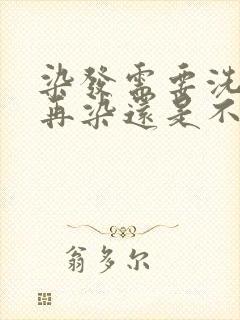 染發需要洗
再染還是不
翁多尔